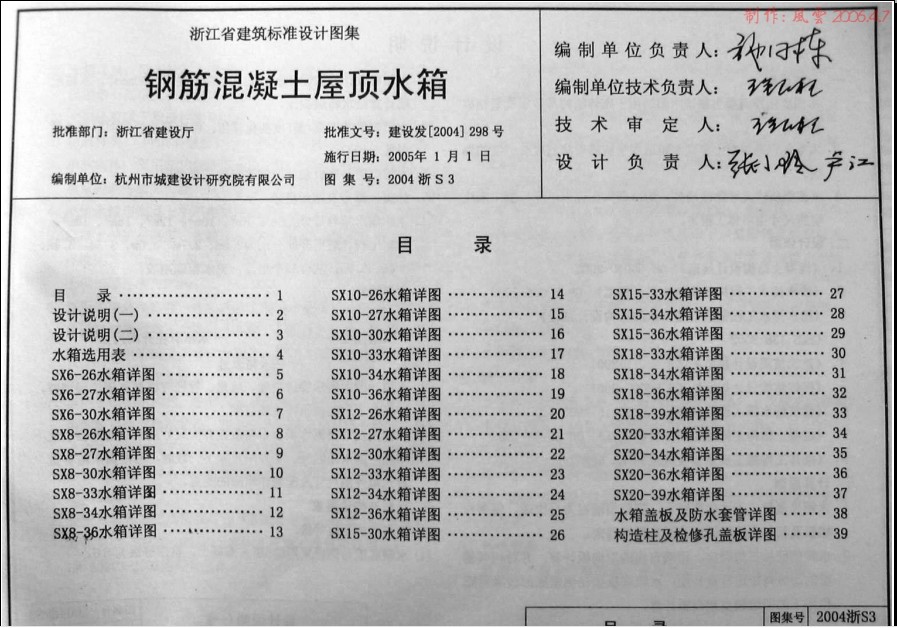 制作: 風雲 2006.4.7
浙江省建筑标准设计图集
钢筋混凝土屋顶水箱
批准部门: 浙江省建设厅
批准文号: 建设发[2004] 298 号
施行日期: 2005年 1 月 1 日
编制单位: 杭州市城建设计研究院有限公司
图 集 号: 2004 浙 S 3
编 制 单 位 负 责 人:
编制单位技术负责人:
技 术 审 定 人:
设 计 负 责 人: 卢江
目 录
目 录 ························ 1
设计说明(一) ···················· 2
设计说明(二) ···················· 3
水箱选用表 ······················ 4
SX6-26水箱详图 ················· 5
SX6-27水箱详图 ················· 6
SX6-30水箱详图 ················· 7
SX8-26水箱详图 ················· 8
SX8-27水箱详图 ················· 9
SX8-30水箱详图 ················· 10
SX8-33水箱详图 ················· 11
SX8-34水箱详图 ················· 12
SX8-36水箱详图 ················· 13
SX10-26水箱详图 ················ 14
SX10-27水箱详图 ················ 15
SX10-30水箱详图 ················ 16
SX10-33水箱详图 ················ 17
SX10-34水箱详图 ················ 18
SX10-36水箱详图 ················ 19
SX12-26水箱详图 ················ 20
SX12-27水箱详图 ················ 21
SX12-30水箱详图 ················ 22
SX12-33水箱详图 ················ 23
SX12-34水箱详图 ················ 24
SX12-36水箱详图 ················ 25
SX15-30水箱详图 ················ 26
SX15-33水箱详图 ················ 27
SX15-34水箱详图 ················ 28
SX15-36水箱详图 ················ 29
SX18-33水箱详图 ················ 30
SX18-34水箱详图 ················ 31
SX18-36水箱详图 ················ 32
SX18-39水箱详图 ················ 33
SX20-33水箱详图 ················ 34
SX20-34水箱详图 ················ 35
SX20-36水箱详图 ················ 36
SX20-39水箱详图 ················ 37
水箱盖板及防水套管详图 ········ 38
构造柱及检修孔盖板详图 ········ 39
目 录
图集号 2004浙S3